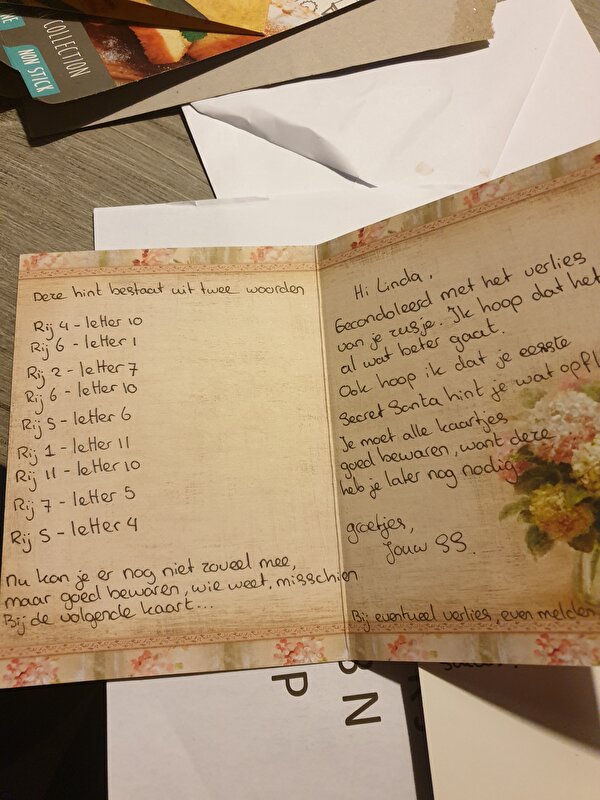 COLLECTION
NON STICK
Deze hint bestaat uit twee woorden
Rij 4 - letter 10
Rij 6 - letter 1
Rij 2 - letter 7
Rij 6 - letter 10
Rij 5 - letter 6
Rij 1 - letter 11
Rij 11 - letter 10
Rij 7 - letter 5
Rij 5 - letter 4
Nu kan je er nog niet zoveel mee,
maar goed bewaren, wie weet, misschien
Bij de volgende kaart...
Hi Linda,
Gecondoleerd met het verlies
van je zusje. Ik hoop dat het
al wat beter gaat.
Ook hoop ik dat je eerste
Secret Santa hint je wat opfl
Je moet alle kaartjes
goed bewaren, want deze
heb je later nog nodig.
groetjes,
Jouw SS.
Bij eventueel verlies, even melden
BN
P